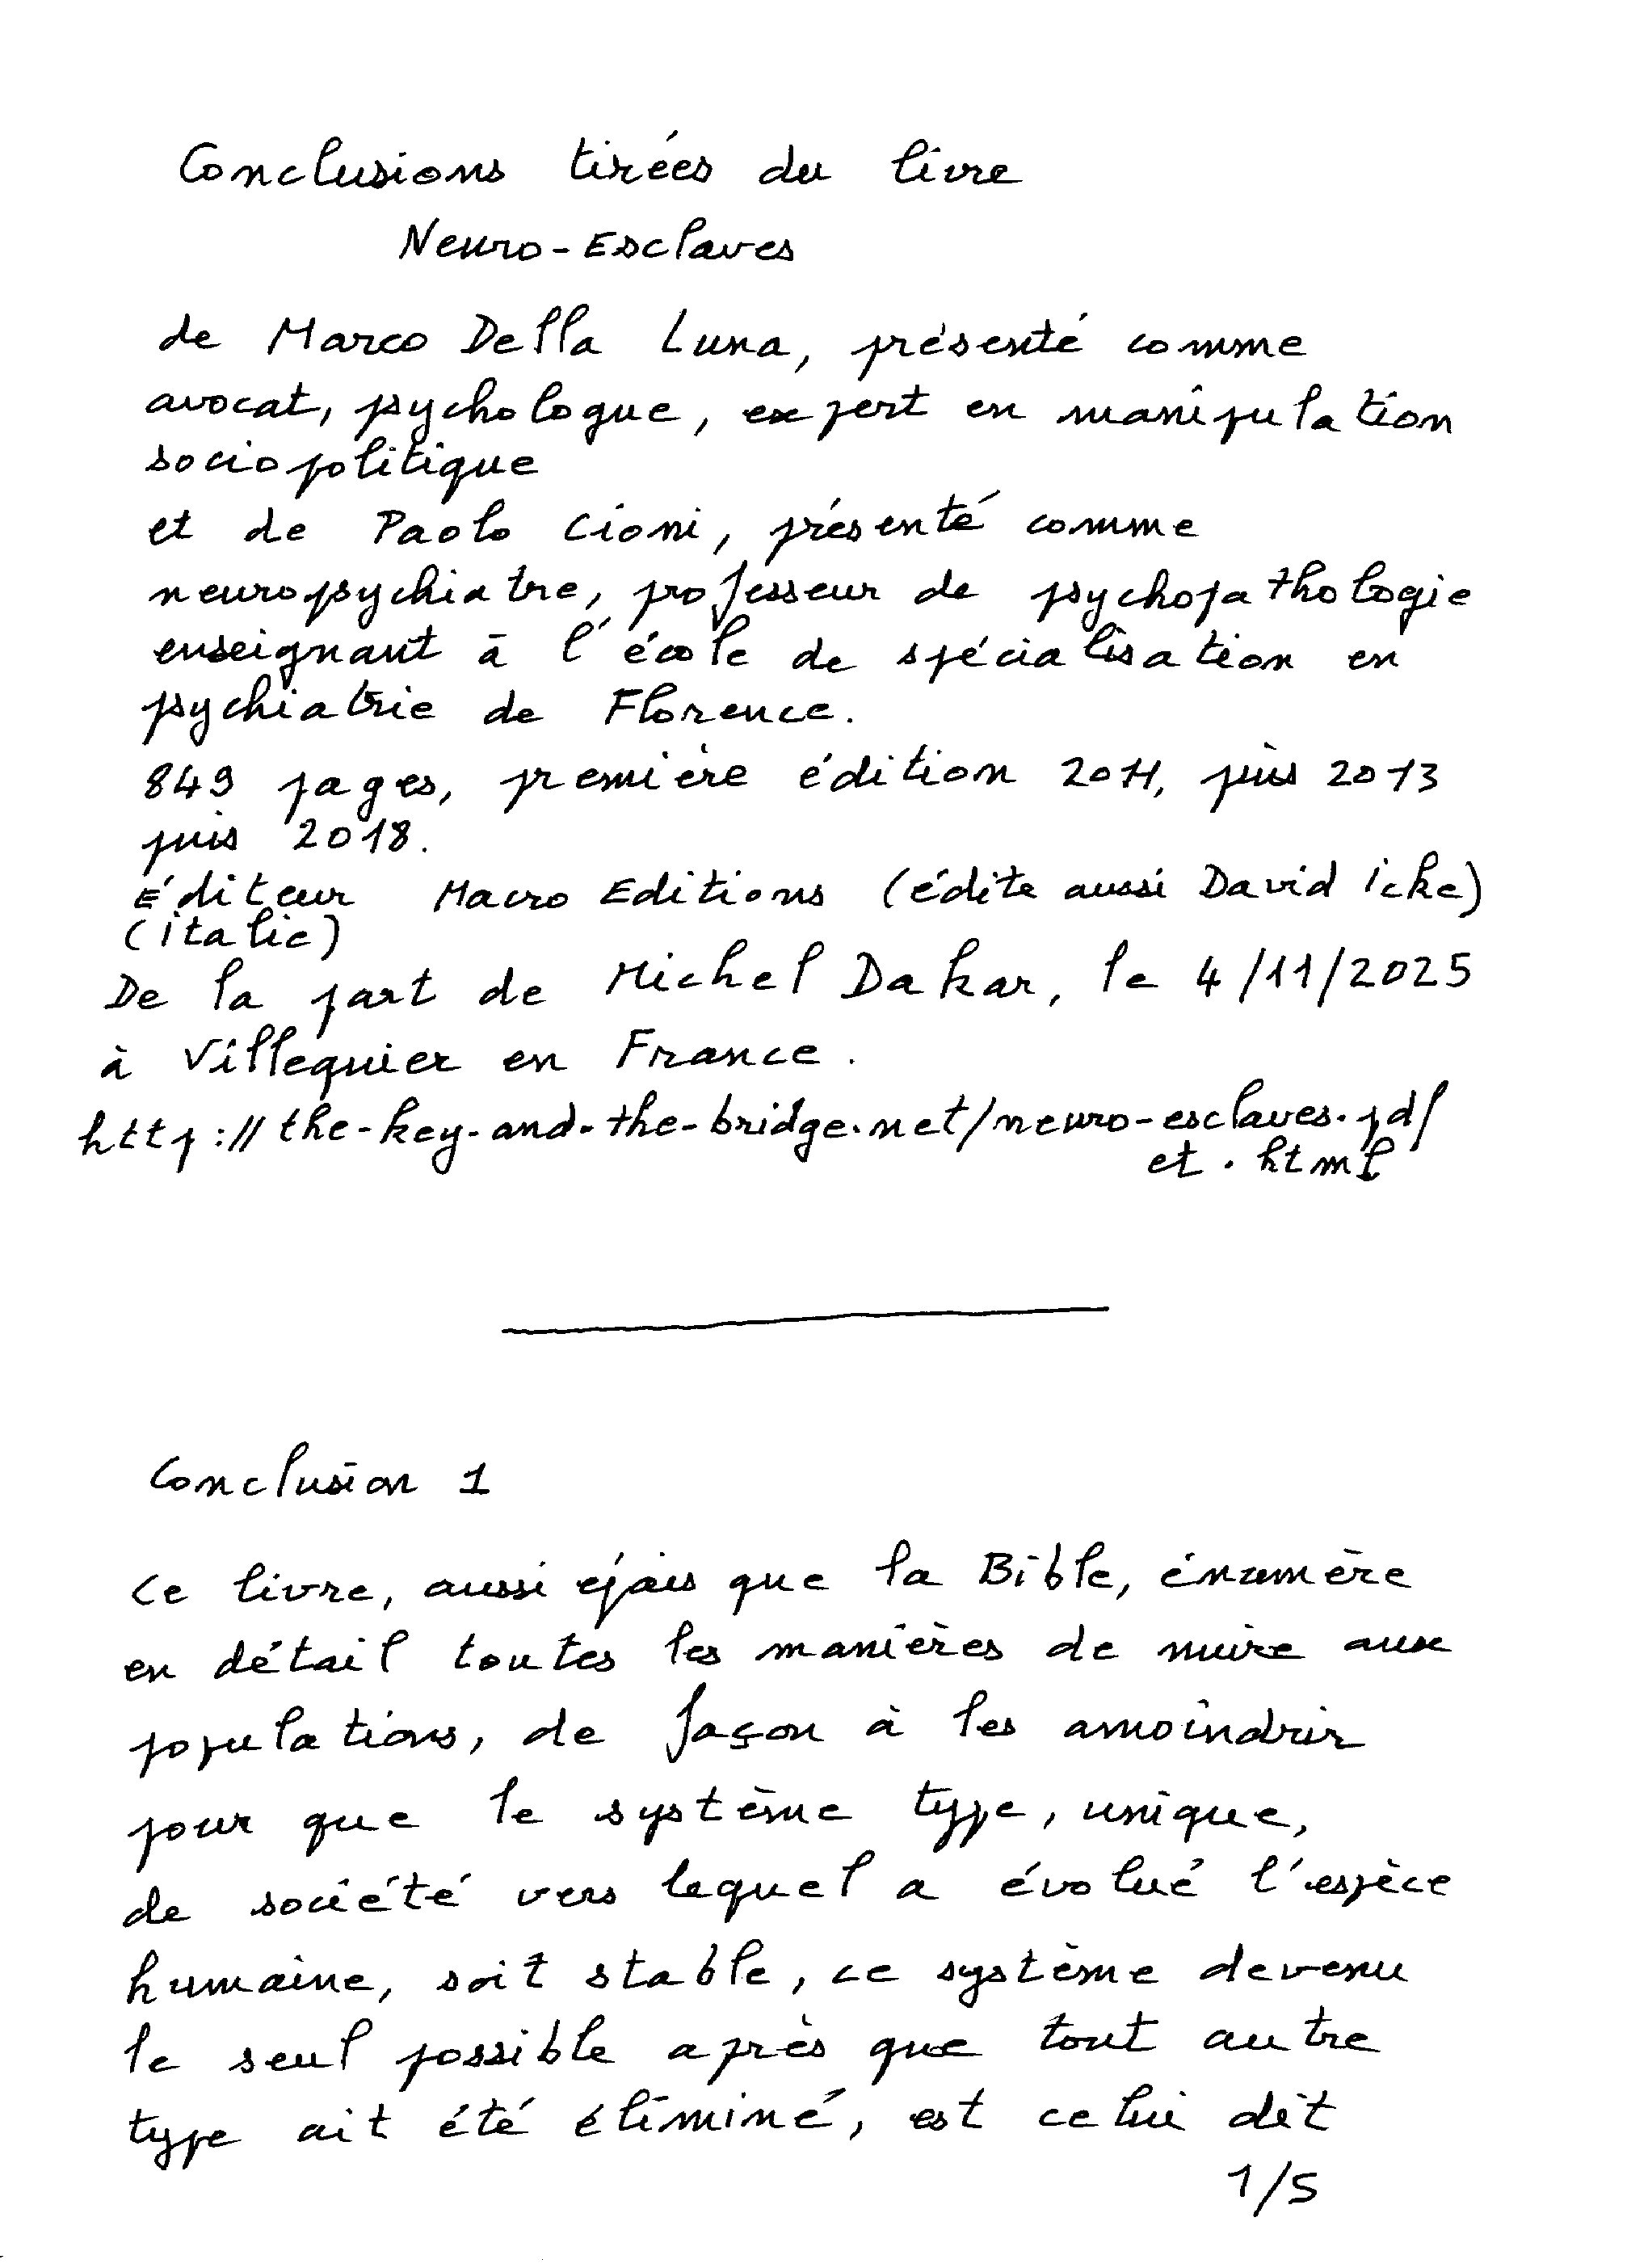 Conclusions tirées du livre
Neuro-Esclaves
de Marco Della Luna, présenté comme
avocat, psychologue, expert en manipulation
sociopolitique
et de Paolo Cioni, présenté comme
neuropsychiatre, professeur de psychopathologie
enseignant à l'école de spécialisation en
psychiatrie de Florence.
849 pages, première édition 2011, puis 2013
puis 2018.
Éditeur Macro Editions (édite aussi David icke)
(italie)
De la part de Michel Dakar, le 4/11/2025
à Villequier en France.
http://the-key-and-the-bridge.net/neuro-esclaves.pdf
et .html
Conclusion 1
Ce livre, aussi épais que la Bible, énumère
en détail toutes les manières de nuire aux
populations, de façon à les amoindrir
pour que le système type, unique,
de société vers lequel a évolué l'espèce
humaine, soit stable, ce système devenu
le seul possible après que tout autre
type ait été éliminé, est celui dit
1/5